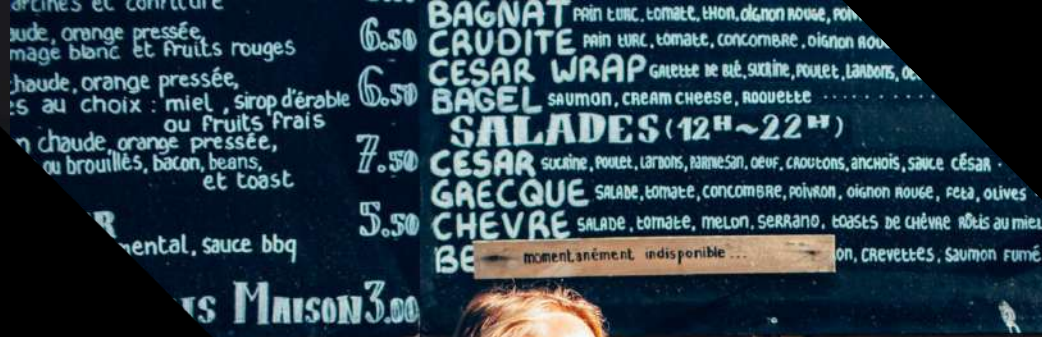 et confiture
aude, orange pressée,
mage blanc et fruits rouges 6.50
chaude, orange pressée,
s au choix : miel, sirop d'érable 6.50
ou fruits frais
n chaude, orange pressée,
ou brouillés, bacon, beans, 7.50
et toast
R 5.50
mental, sauce bbq
IS MAISON 3.00
BAGNAT PAIN TURC, TOMATE, THON, OIGNON ROUGE,
CRUDITE PAIN TURC, TOMATE, CONCOMBRE, OIGNON
CESAR WRAP GALETTE DE BLÉ, SUCRINE, POULET, LARDONS,
BAGEL SAUMON, CREAM CHEESE, ROQUETTE
SALADES (12H~22H)
CESAR SUCRINE, POULET, LARDONS, PARMESAN, OEUF, CROUTONS, ANCHOIS, SAUCE CÉSAR
GRECQUE SALADE, TOMATE, CONCOMBRE, POIVRON, OIGNON ROUGE, FETA, OLIVES
CHEVRE SALADE, TOMATE, MELON, SERRANO, TOASTS DE CHÈVRE RÔTIS AU MIEL
BE momentanément indisponible ... on, CREVETTES, SAUMON FUMÉ